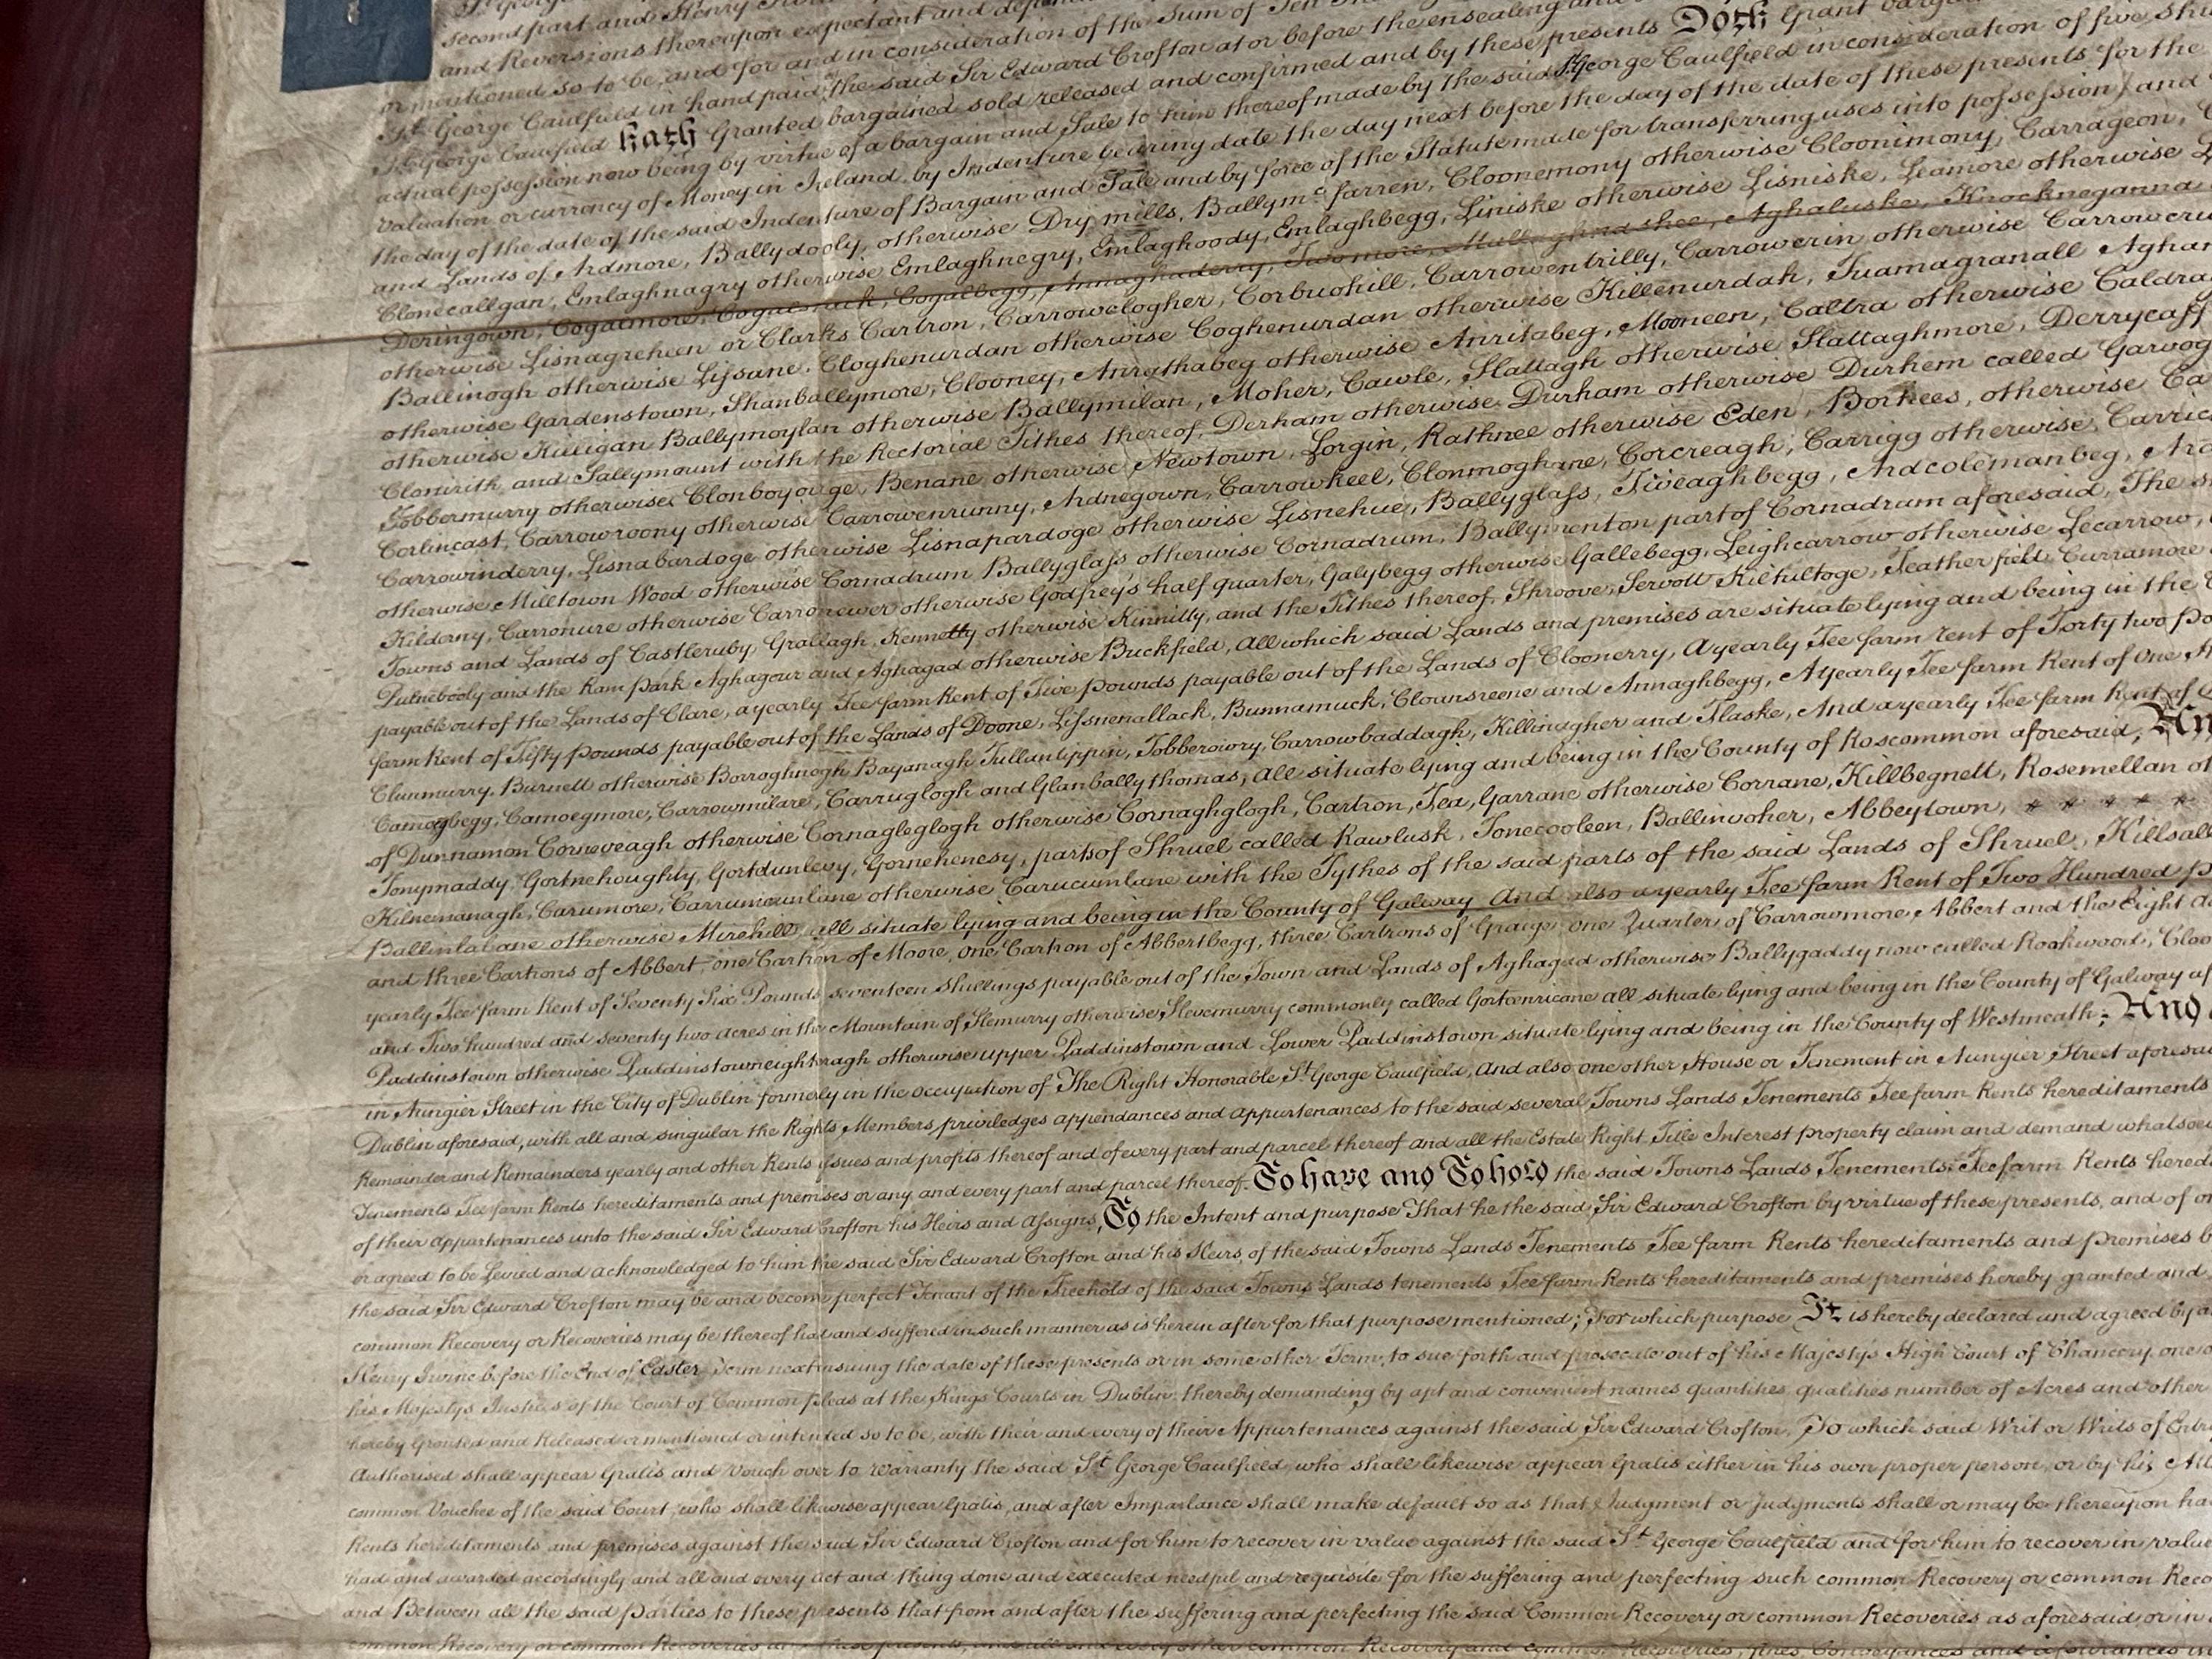 St George
second part and Henry
and Reversions thereupon expectant and
or mentioned so to be, and for and in consideration of the Sum of Ten
St George Caulfield in hand paid the said Sir Edward Crofton at or before the ensealing and
St George Caulfield hath Granted bargained sold released and confirmed and by these presents Doth Grant
actual possession now being by virtue of a bargain and Sale to him thereof made by the said St George Caulfield in consideration of five
valuation or currency of Money in Ireland, by Indenture bearing date the day next before the day of the date of these presents for the
the day of the date of the said Indenture of Bargain and Sale and by force of the Statute made for transferring uses into possession) and
and Lands of Ardmore, Ballydooly, otherwise Dry mills, Ballymc farren, Cloonemony otherwise Cloonimony, Carrageon,
Clonecallgan, Emlaghnagry otherwise Emlaghnegry, Emlaghoody, Emlaghbegg, Liniske otherwise Lisniske, Leamore otherwise
Deringown, Cogalmore, Cogalbegg, Annaghaderry, Twomore, Aghaluske, Knockneganna
otherwise Lisnagreheen or Clarks Cartron, Carrowclogher, Corbuohill, Carrowentrilly, Carrowerin otherwise
Ballinogh otherwise Lissane, Cloghenurdan otherwise Coghenurdan otherwise Killenurdah, Tuamagranall
otherwise Gardenstown, Shanballymore, Clooney, Anrythabeg otherwise Anritabeg, Mooneen, Caltra otherwise
otherwise Killigan Ballymoylan otherwise Ballymilan, Moher, Cawle, Slattagh otherwise Slattaghmore,
Clonirith, and Sallymount with the Rectorial Tithes thereof, Derham otherwise Durham otherwise Durhem called
Tobbermurry otherwise Clonboyouge, Benane otherwise Newtown, Lorgin, Rathnee otherwise Eden, Borhees, otherwise
Corlincast, Carrowroony otherwise Carrowenrunny, Ardnegown, Carrowkeel, Clonmoghane, Corcreagh, Carrigg otherwise
Carrowinderry, Lisnabardoge otherwise Lisnapardoge otherwise Lisnehue, Ballyglass, Tiveaghbegg, Ardcolemanbeg,
otherwise Milltown Wood otherwise Cornadrum Ballyglass otherwise Cornadrum, Ballymenton part of Cornadrum aforesaid, The
Kilderny, Carronure otherwise Carronewer otherwise Godfrey's half quarter, Galybegg otherwise Gallebegg, Leighcarrow otherwise Lecarrow,
Towns and Lands of Castleruby, Grallagh, Kennetty otherwise Kinnitty, and the Tithes thereof, Shroove, Servott Kilhiltoge, Featherfield, Curramore
and the Ram Park Aghagour and Aghagad otherwise Buckfield, All which said Lands and premises are situate lying and being in the
payable out of the Lands of Clare, a yearly Fee farm Rent of Five Pounds payable out of the Lands of Cloonerry, A yearly Fee farm Rent of Forty two
farm Rent of Fifty Pounds payable out of the Lands of Doone, Lissnenallack, Bunnamuck, Clounsreene and Annaghbegg, A yearly Fee farm Rent of One
Clunmurry, Burnett otherwise Borroghnogh Bayanagh Tulluntippin, Tobberowry, Carrowbaddagh, Killinagher and Flaske, And a yearly Fee farm Rent of
Camogbegg, Camoegmore, Carrowmilare, Carruglogh and Glanballythomas, all situate lying and being in the County of Roscommon aforesaid, And
of Dunnamon Corneveagh otherwise Cornagleglogh otherwise Cornaghglogh, Cartron, Tea, Garrane otherwise Corrane, Killbegnett, Rosemellan
Tonymaddy, Gortnehoughty, Gortdunlevy, Gornehenesy, parts of Shruel called Rawlusk, Tonecooleen, Ballinvoher, Abbeytown, * * * * *
Kilnemanagh, Carumore, Carrumeunlane otherwise Carucunlane with the Tythes of the said parts of the said Lands of Shruel,
Ballinlabane otherwise Mirehill, all situate lying and being in the County of Galway And also a yearly Fee farm Rent of Two Hundred
and three Cartrons of Abbert, one Cartron of Moore, one Cartron of Abbertbegg, three Cartrons of Graige, one Quarter of Carrowmore, Abbert and the Eight
yearly Fee farm Rent of Seventy Six Pounds seventeen Shillings payable out of the Town and Lands of Aghagad otherwise Ballygaddy now called Rookwood,
and Two hundred and seventy two acres in the Mountain of Slemurry otherwise Slevemurry commonly called Gorteenricane all situate lying and being in the County of Galway
Paddinstown otherwise Paddinstowneightragh otherwise upper Paddinstown and Lower Paddinstown situate lying and being in the County of Westmeath; And
in Aungier Street in the City of Dublin formerly in the occupation of The Right Honorable St George Caulfield, And also one other House or Tenement in Aungier Street
Dublin aforesaid, with all and singular the Rights, Members, priviledges appendances and appurtenances to the said several Towns Lands Tenements Fee farm Rents hereditaments
Remainder and Remainders yearly and other Rents issues and profits thereof and of every part and parcel thereof and all the Estate Right Title Interest property claim and demand
Tenements Fee farm Rents hereditaments and premises or any and every part and parcel thereof. To have and To hold the said Towns Lands Tenements, Fee farm Rents
of their appurtenances unto the said Sir Edward Crofton his Heirs and Assigns, To the Intent and purpose That he the said Sir Edward Crofton by virtue of these presents, and of
or agreed to be Levied and acknowledged to him the said Sir Edward Crofton and his Heirs, of the said Towns Lands Tenements Fee farm Rents hereditaments and premises
the said Sir Edward Crofton may be and become perfect Tenant of the Freehold of the said Towns Lands tenements Fee farm Rents hereditaments and premises hereby granted and
common Recovery or Recoveries may be thereof had and suffered in such manner as is herein after for that purpose mentioned; For which purpose It is hereby declared and agreed by
Henry Irvine before the End of Easter Term next ensuing the date of these presents or in some other Term, to sue forth and prosecute out of his Majesty's High Court of Chancery, one
his Majestys Justices of the Court of Common pleas at the Kings Courts in Dublin, thereby demanding by apt and convenient names quantities, qualities number of Acres and other
hereby Granted and Released or mentioned or intended so to be, with their and every of their Appurtenances against the said Sir Edward Crofton, To which said Writ or Writs of
Authorised shall appear Gratis and Vouch over to Warranty the said St George Caulfield, who shall likewise appear Gratis either in his own proper person, or by his
common Vouchee of the said Court, who shall likewise appear Gratis, and after Imparlance shall make default so as that Judgment or Judgments shall or may be thereupon
Rents hereditaments and premises against the said Sir Edward Crofton and for him to recover in value against the said St George Caulfield and for him to recover in value
had and awarded accordingly and all and every act and thing done and executed needful and requisite for the suffering and perfecting such common Recovery or common
and Between all the said Parties to these presents that from and after the suffering and perfecting the said Common Recovery or common Recoveries as aforesaid or in
common Recovery or common Recoveries and all and every other common Recovery and common Recoveries, fines, Conveyances and assurances